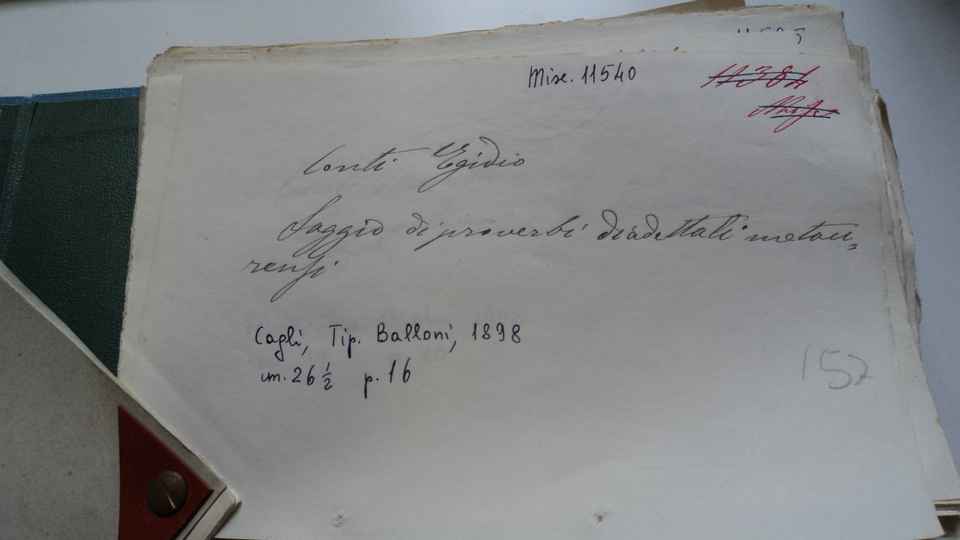 Misc. 11540
11384
Conti Egidio
Saggio di proverbi diadettali metau=
rensi
Cagli, Tip. Balloni, 1898
cm. 26 1/2 p. 16
152